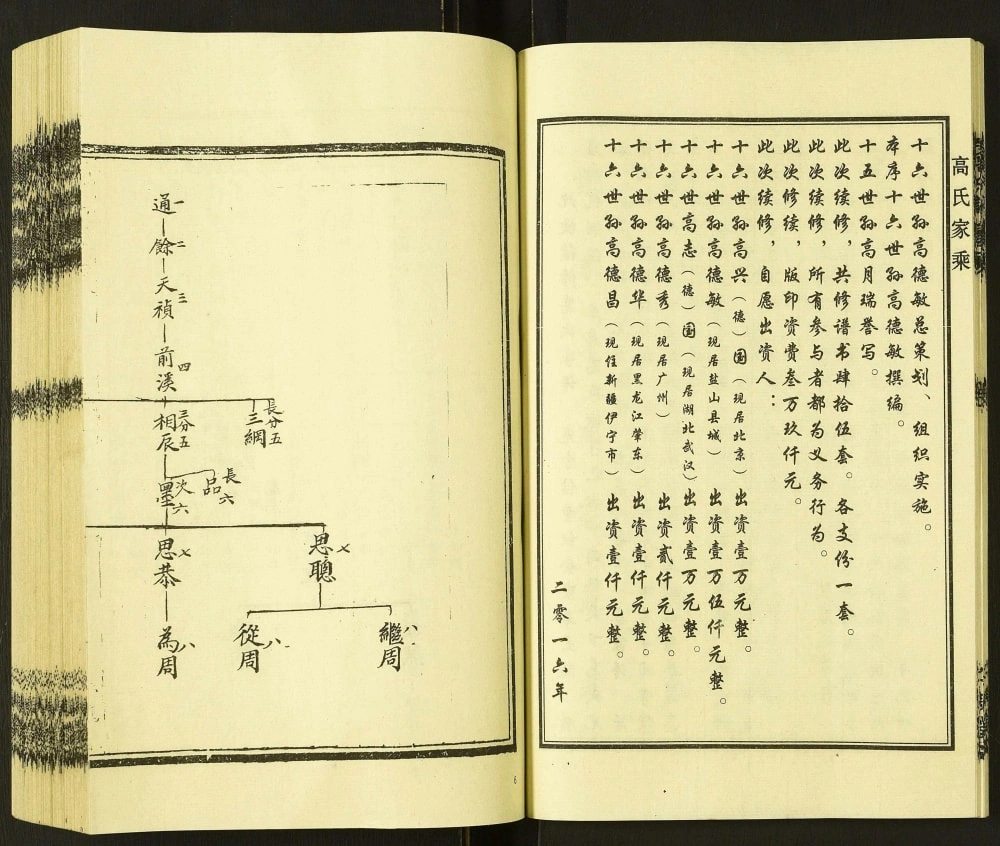 高氏家乘
十六世孙高德敏总策划、组织实施。
本序十六世孙高德敏撰编。
十五世孙高月瑞誉写。
此次续修，共修谱书肆拾伍套。各支份一套。
此次续修，所有参与者都为义务行为。
此次修续，版印资费叁万玖仟元。
此次续修，自愿出资人：
十六世孙高兴（德）国（现居北京）出资壹万元整。
十六世孙高德敏（现居盐山县城）出资壹万伍仟元整。
十六世孙高志（德）国（现居湖北武汉）出资壹万元整。
十六世孙高德秀（现居广州）出资贰仟元整。
十六世孙高德华（现居黑龙江肇东）出资壹仟元整。
十六世孙高德昌（现住新疆伊宁市）出资壹仟元整。
二零一六年
一
通
二
餘
三
天禎
四
前溪
長分五
三綱
三分五
相辰
長六
品
次六
墨
七
思聰
七
思恭
八
繼周
八
從周
八
為周
6